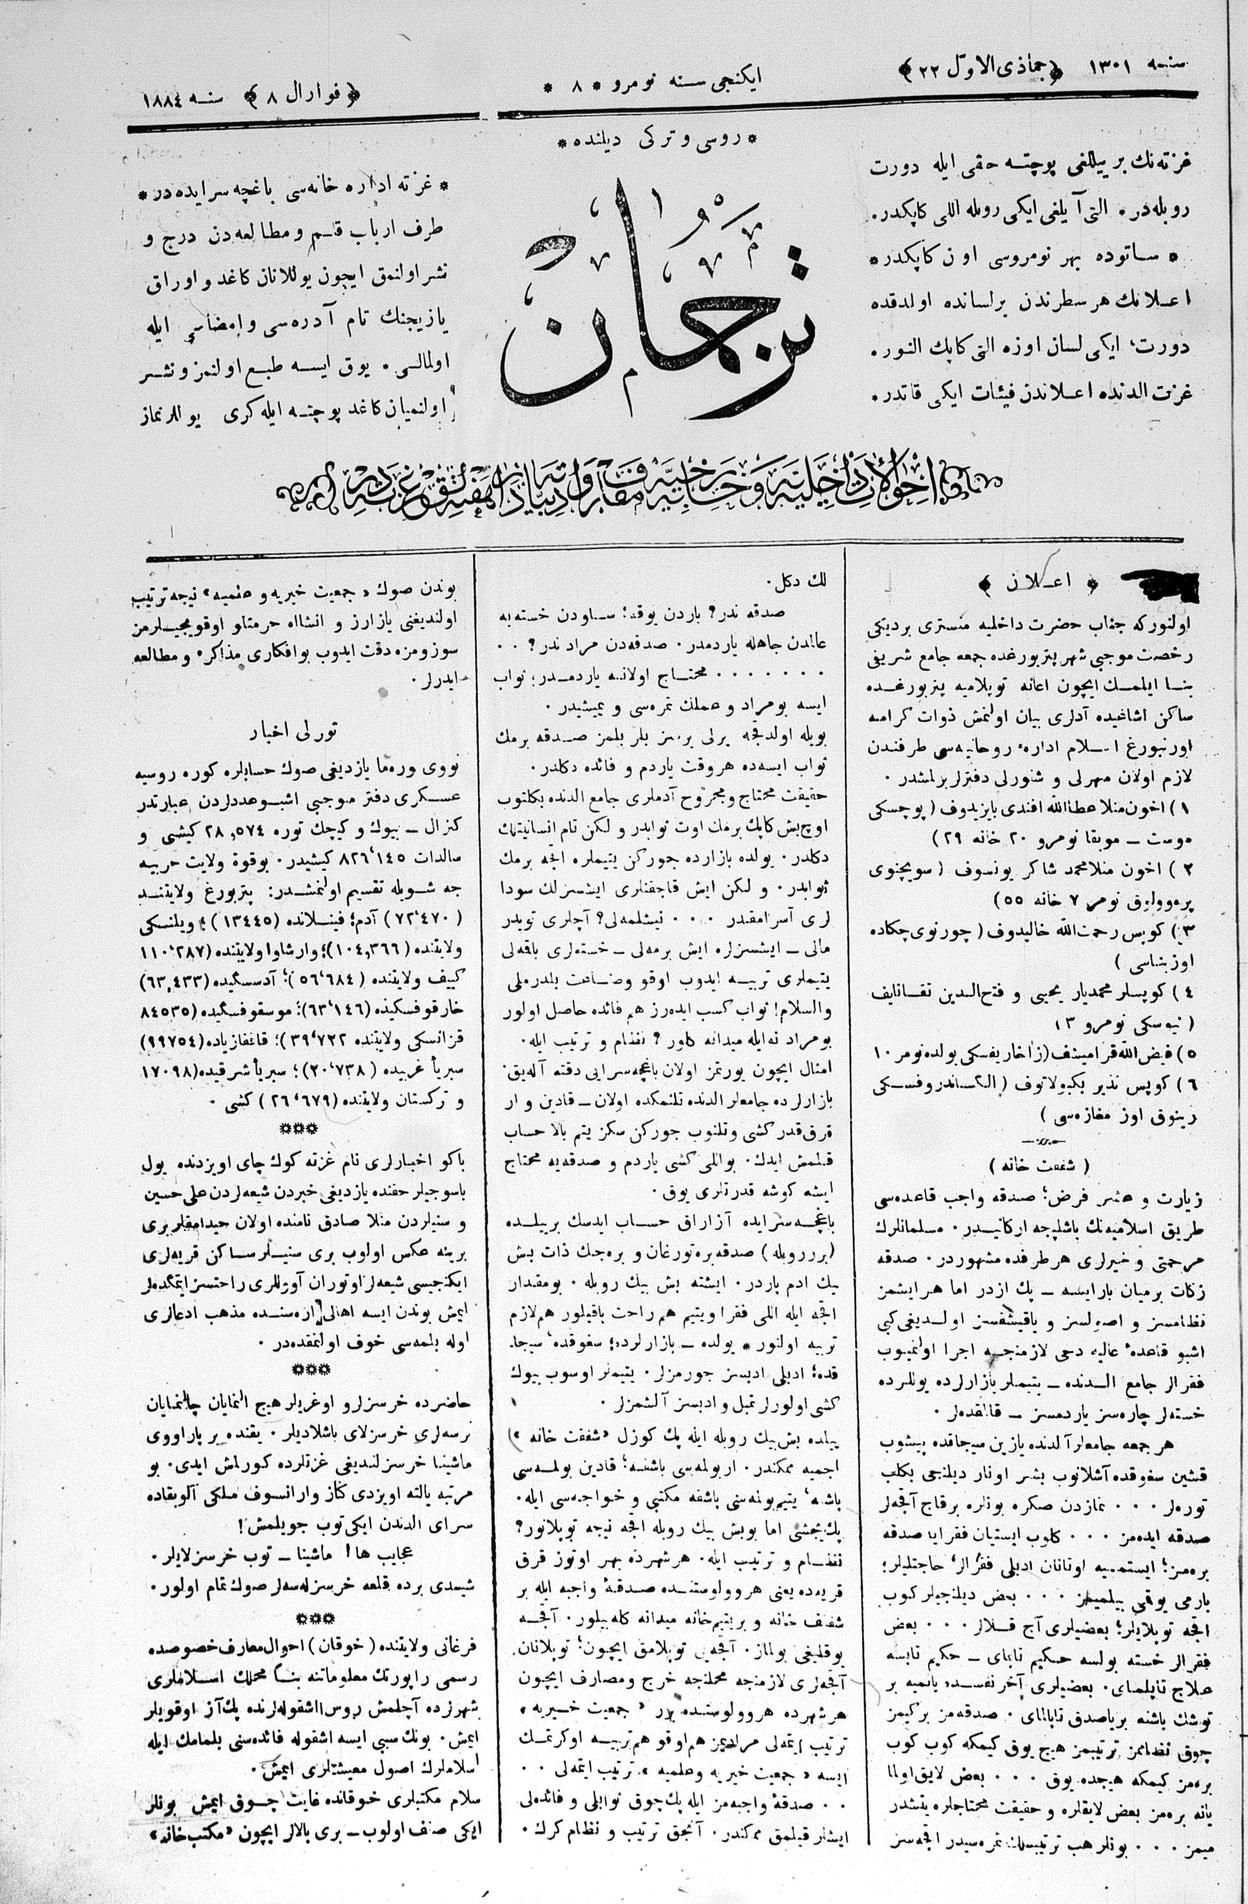 سنه ١٣٠١ ﴿جماذی الاول ٢٢﴾
ایکنجی سنه نومرو * ٨ *
﴿فوارال ٨﴾ سنه ١٨٨٤
* روسی و ترکی دیلنده *
ترجمان
غزته‌نك بر ییللغی پوچته حقی ایله دورت
روبله‌در. التی آیلغی ایکی روبله اللی کاپکدر.
* ساتوده بهر نومروسی اون کاپکدر *
اعلانك هر سطرندن برلسانده اولدقده
دورت، ایکی لسان اوزه التی کاپك النور.
غزت الدنده اعلاندن فیئات ایکی قاتدر.
* غزته اداره خانه‌سی باغچه سرایده‌در *
طرف ارباب قلم و مطالعه‌دن درج و
نشر اولنمق ایچون یوللانان کاغد و اوراق
یازیجنك تام آدره‌سی و امضاسی ایله
اولمالی. یوق ایسه طبع اولنمز و نشر
اولنمیان کاغد پوچته ایله کری یوللرنماز
﴿ اعلان ﴾
اولنورکه جناب حضرت داخلیه منستری بردیکی
رخصت موجبی شهر پتربورغده جمعه جامع شریفی
بنا ایلمك ایچون اعانه توپلامیه پتربورغده
ساکن اشاغیده آدلری بیان اولنمش ذوات کرامه
اورنبورغ اسلام اداره روحانیه‌سی طرفندن
لازم اولان مهرلی و شنورلی دفترلر برلمشدر.
١) اخون منلا عطاالله افندی بایزیدوف (پوچسکی
موست — مویقا نومرو ٢٠ خانه ٢٩)
٢) اخون منلا محمد شاکر یونسوف (سویچنوی
نومر ٧ خانه ٥٥)
٣) کوپس رحمت‌الله خالیدوف (چورنوی چکاده
اوز شاسی)
٤) کوپسلر محمدیار یحیی و فتح‌الدین
(نیوسکی نومرو ١٣)
٥) فیض‌الله قرامیشف (زاخاریفسکی یولده نومر ١٠
٦) کوپس نذیر بکبولاتوف (الکساندروفسکی
رینوق اوز مغازه‌سی)
(شفقت خانه)
زیارت و عشر فرض؛ صدقه واجب قاعده‌سی
طریق اسلامیه‌نك باشلیجه ارکانیدر. مسلمانلرك
مرحمتی و خیرلری هر طرفده مشهوردر. صدقه
زکات برمیان بار ایسه — پك ازدر اما هر ایشمز
نظامسز و اصولسز و یاقیشقسز اولدیغی کبی
اشبو قاعدهٔ عالیه دخی لازمنجه اجرا اولنمیوب
فقرالر جامع الدنده — یتیملر بازارلرده یوللرده
خسته‌لر چاره‌سز یاردمسز — قالقده‌لر.
هر جمعه جامعلر آلدنده یازین سیجاقده پیشوب
قیشین سغوقده آشلانوب بشر اونار دیلنجی بکلب
توره‌لر ... نمازدن صکره بونلره برقاج آقچه‌لر
صدقه ایده‌مز ... کلوب ایستیان فقرایا صدقه
بره‌مز؛ ایستمییه اوتانان ادبلی فقرالر حاجتلیلر؛
بارمی یوقی بیلمیمز ... بعض دیلنجیلر کوب
اقچه توپلایلر؛ بعضیلری آج قلالر ... بعض
فقرالر خسته بولسه حکیم تابای — حکیم تابسه
علاج تابلمای. بعضیلری آخر نفسده یانمیه بر
توشك باشنه بر یاصدق تابالمای. صدقه‌مز برکیمز
چوق نظامز ترتیبمز هیچ یوق کیمکه کوب کوب
بره‌مز کیمکه هیچده یوق ... بعض لایق اولما
یانه بره‌مز بعض لایقلره و حقیقت محتاجلره یتیشدر
میمز ... بونلر هب ترتیبسزلك ثمره‌سیدر اقچه‌سز
لك دکل.
صدقه ندر؟ باردن یوقه؛ ساودن خسته‌یه
عالمدن جاهله یاردمدر. صدقه‌دن مراد ندر؟ ..
....... محتاج اولانه یاردمدر؛ ثواب
ایسه بومراد و عملك ثمره‌سی و یمیشیدر.
بویله اولدقجه یرلی یرسز بلر بلمز صدقه برمك
ثواب ایسه‌ده هروقت یاردم و فائده دکلدر.
حقیقت محتاج و مجروح آدملری جامع الدنده بکلتوب
اوچ بش کاپك برمك اوت ثوابدر و لکن تام انسانیتلك
دکلدر. یولده بازارده جورکن یتیملره اقچه برمك
ثوابدر. و لکن ایش قاجقنلری ایشسزلك سودا
لری آسرامقدر ... نیشلمه‌لی؟ آچلری تویدر
مالی — ایشسزلره ایش برمه‌لی — خسته‌لری باقه‌لی
یتیملری تربیه ایدوب اوقو وضناعت بلدرملی
والسلام! ثواب کسب ایده‌رز هم فائده حاصل اولور
بومراد نه‌ایله میدانه کلور؟ نظام و ترتیب ایله.
امثال ایچون یورتمز اولان باغچه‌سرایی دقته آله‌یق.
بازارلرده جامعلر الدنده تلنمکده اولان — قادین و ار
قرق قدر کشی وتلنوب جورکن سکز یتیم بالا حساب
قیلمش ایدك. بواللی کشی یاردم و صدقه‌یه محتاج
ایشه کوشه قدرتلری یوق.
باغچه‌سرایده آزاراق حساب ایدسك برییلده
(بررروبله) صدقه بره‌تورغان و بره‌جك ذات بش
بیك ادم باردر. ایشته بش بیك روبله. بومقدار
اقچه ایله اللی فقرا ویتیم هم راحت باقیلور هم لازم
تربیه اولنور * یولده — بازارلرده؛ سغوقده، سیجا
قده؛ ادبلی ادبسز جورمزلر. یتیملر اوسوب بیوك
کشی اولورلر تمبل و ادبسز آلشمزلر.
ییلده بش بیك روبله ایله پك کوزل «شفقت خانه»
اچمیه ممکندر. اربولمه‌سی باشقه؛ قادین بولمه‌سی
باشقه، یتیم بولمه‌سی باشقه مکتبی و خواجه‌سی ایله.
پك یخشی اما بوبش بیك روبله اقچه نیچه توپلانور؟
نظام و ترتیب ایله. هرشهرده بهر اوتوز قرق
قریه‌ده یعنی هر وولوستنده صدقهٔ واجبه ایله بر
شفقت خانه و بریتیم‌خانه میدانه کله‌بیلور. آقچه
یوقلیغی بولماز. آقچه‌یی توپلامق ایچون؛ توپلانان
آقچه‌لری لازمنجه محلنجه خرج ومصارف ایچون
هرشهرده هروولوستنده برر «جمعیت خیریه»
ترتیب ایتمه‌لی مرادیمز هم اوقو هم تربیه اوکرتمك
ایسه «جمعیت خیریه وعلمیه» ترتیب ایتمه‌لی ..
.. صدقهٔ واجبه‌مز ایله پك چوق ثوابلی و فائده‌لی
ایشلر قیلمق ممکندر. آنجق ترتیب و نظام کرك.
بوندن صوك «جمعیت خیریه و علمیه» نیجه ترتیب
اولندیغنی یازارز و انشاالله حرمتلو اوقویجیلرمز
سوزومزه دقت ایدوب بوافکاری مذاکره و مطالعه
ایدرلر.
تورلی اخبار
نووی وره‌ما یازدیغی صوك حسابلره کوره روسیه
عسکری دفتر موجبی اشبو عددلردن عبارتدر
کنرال — بیوك و کیچك توره ٢٨,٥٧٤ کیشی و
سالدات ٨٢٦،١٤٥ کیشیدر. بوقوة ولایت حربیه
جه شویله تقسیم اولنمشدر: پتربورغ ولایتنده
(٧٢،٤٧٠) آدم؛ فینلانده (١٣٤٤٥)؛ ویلنسکی
ولایتنده (١٠٤,٣٦٦)؛ وارشاوا ولایتنده (١١٠،٢٨٧
کییف ولایتنده (٥٦،٦٨٤)؛ آدسسکیده (٦٣,٤٣٣)
خارقوفسکیده (٦٣،١٤٦)؛ موسقوفسکیده (٨٤٥٣٥
قزانسکی ولایتنده ٣٩،٧٢٢)؛ قافقازیاده (٩٩٧٥٤)
سبریأ غربیده (٢٠،٧٣٨)؛ سبریأ شرقیده (١٧٠٩٨
و ترکستان ولایتنده (٢٦،٦٧٩) کشی.
***
باکو اخبارلری نام غزته کوك چای اویزدنده یول
باسوجیلر حقنده یازدیغی خبردن شیعه‌لردن علی حسین
و سنیلردن منلا صادق نامنده اولان حیدامقلر بری
برینه عکس اولوب بری سنیلر ساکن قریه‌لری
ایکنجیسی شیعه‌لر اوتوران آوللری راحتسز ایتمکده‌لر
ایمش بوندن ایسه اهالی اره‌سنده مذهب ادعالری
اوله بلمه‌سی خوف اولنمقده‌در.
***
حاضرده خرسزلر و اوغریلر هیچ النمایان چالنمایان
نرسه‌لری خرسزلای باشلادیلر. یقنده بر پاراووی
ماشینا خرسزلندیغی غزتلرده کورلمش ایدی. بو
مرتبه یالته اویزدی کناز وارانسوف ملکی آلوبقاده
سرای الدندن ایکی توب جویلمش!
عجایب ها! ماشینا — توب خرسزلایلر.
شیمدی برده قلعه خرسزله‌سه‌لر صوك تمام اولور.
***
فرغانی ولایتنده (خوقان) احوال معارف خصوصده
رسمی راپورتك معلوماتنه بنا محلك اسلاملری
شهرنده آچلمش روس اشقوله‌لرنده پك آز اوقویلر
ایمش. بونك سببی ایسه اشقوله فائده‌سنی بلمامك ایله
اسلاملرك اصول معیشتلری ایمش.
سلام مکتبلری خوقانده غایت چوق ایمش بونلر
ایکی صنف اولوب — بری بالالر ایچون «مکتب خانه»